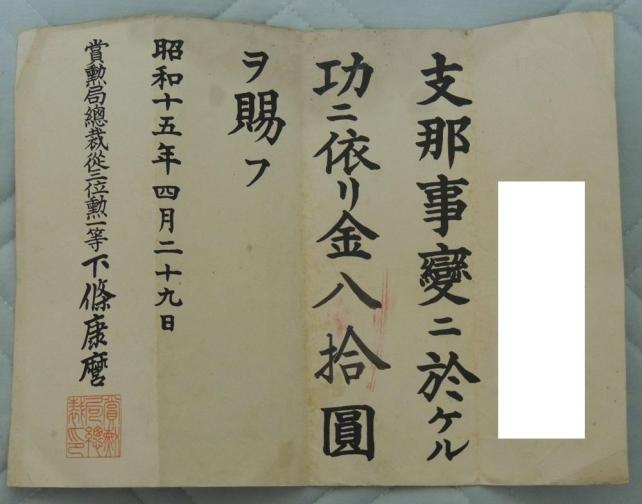 支那事變ニ於ケル
功ニ依リ金八拾圓
ヲ賜フ
昭和十五年四月二十九日
賞勲局總裁從三位勲一等下條康麿
賞勲
局總
裁印